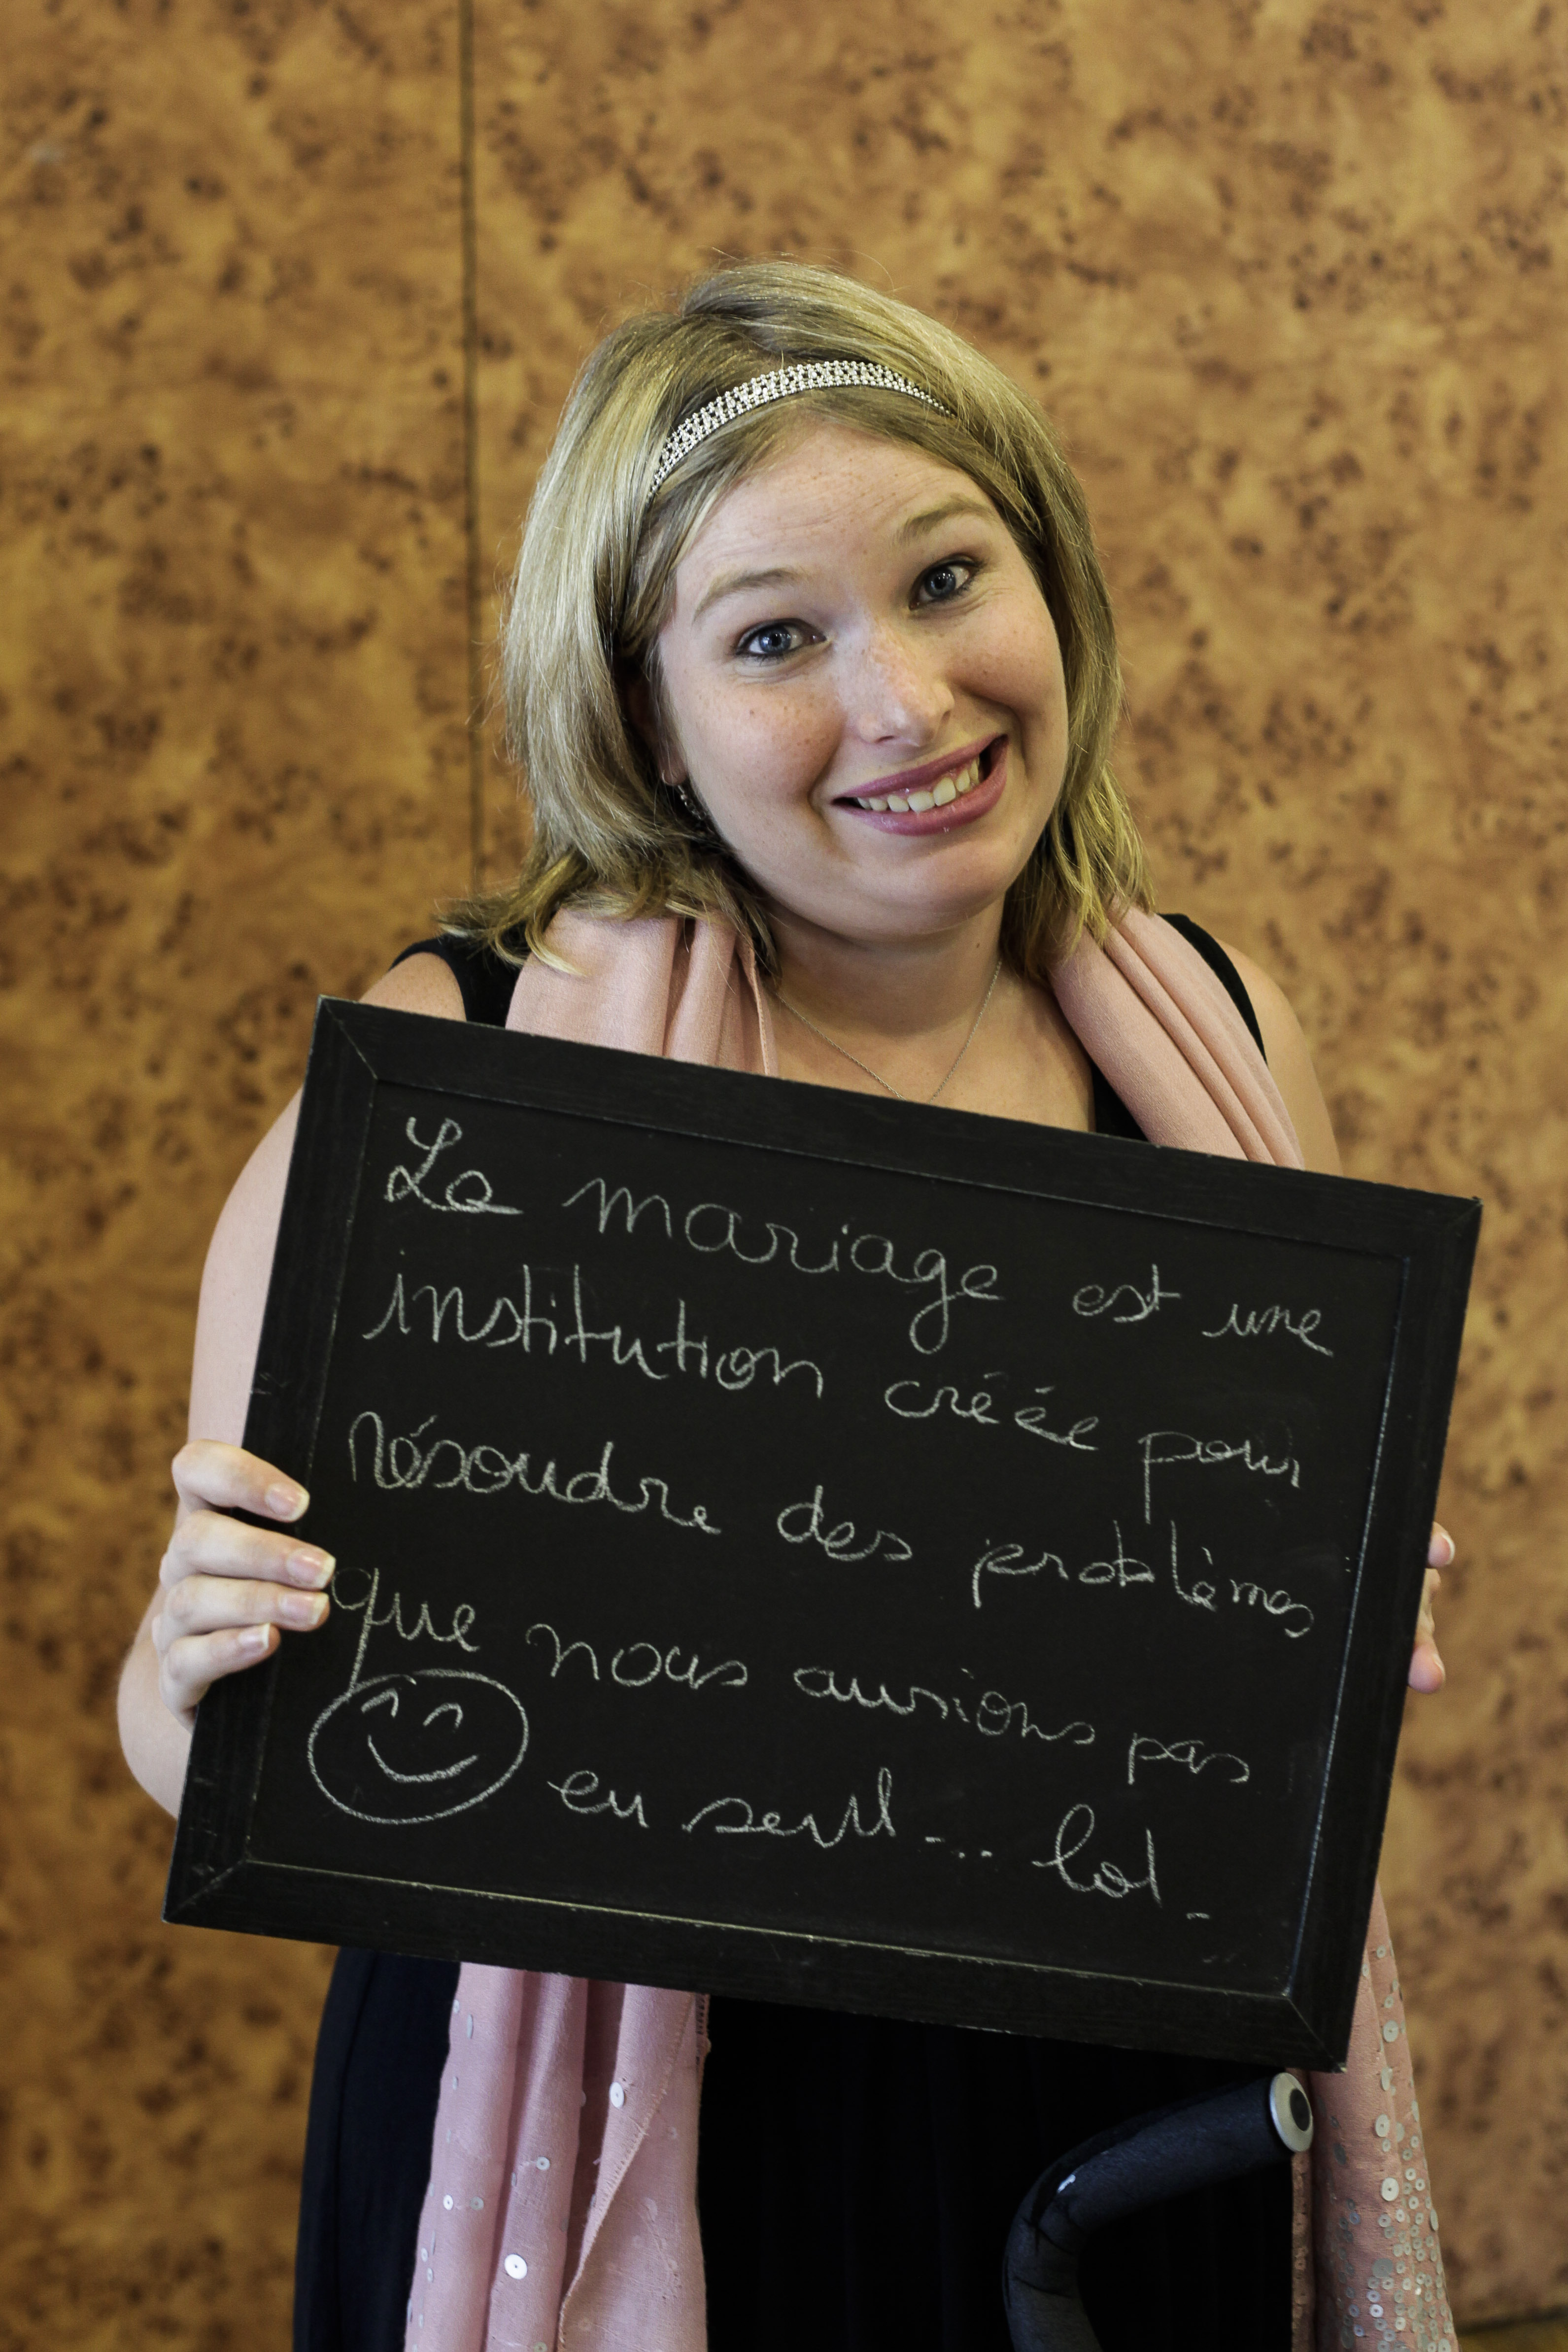 Le mariage est une
institution créée pour
résoudre des problèmes
que nous aurions pas
eu seul... lol.